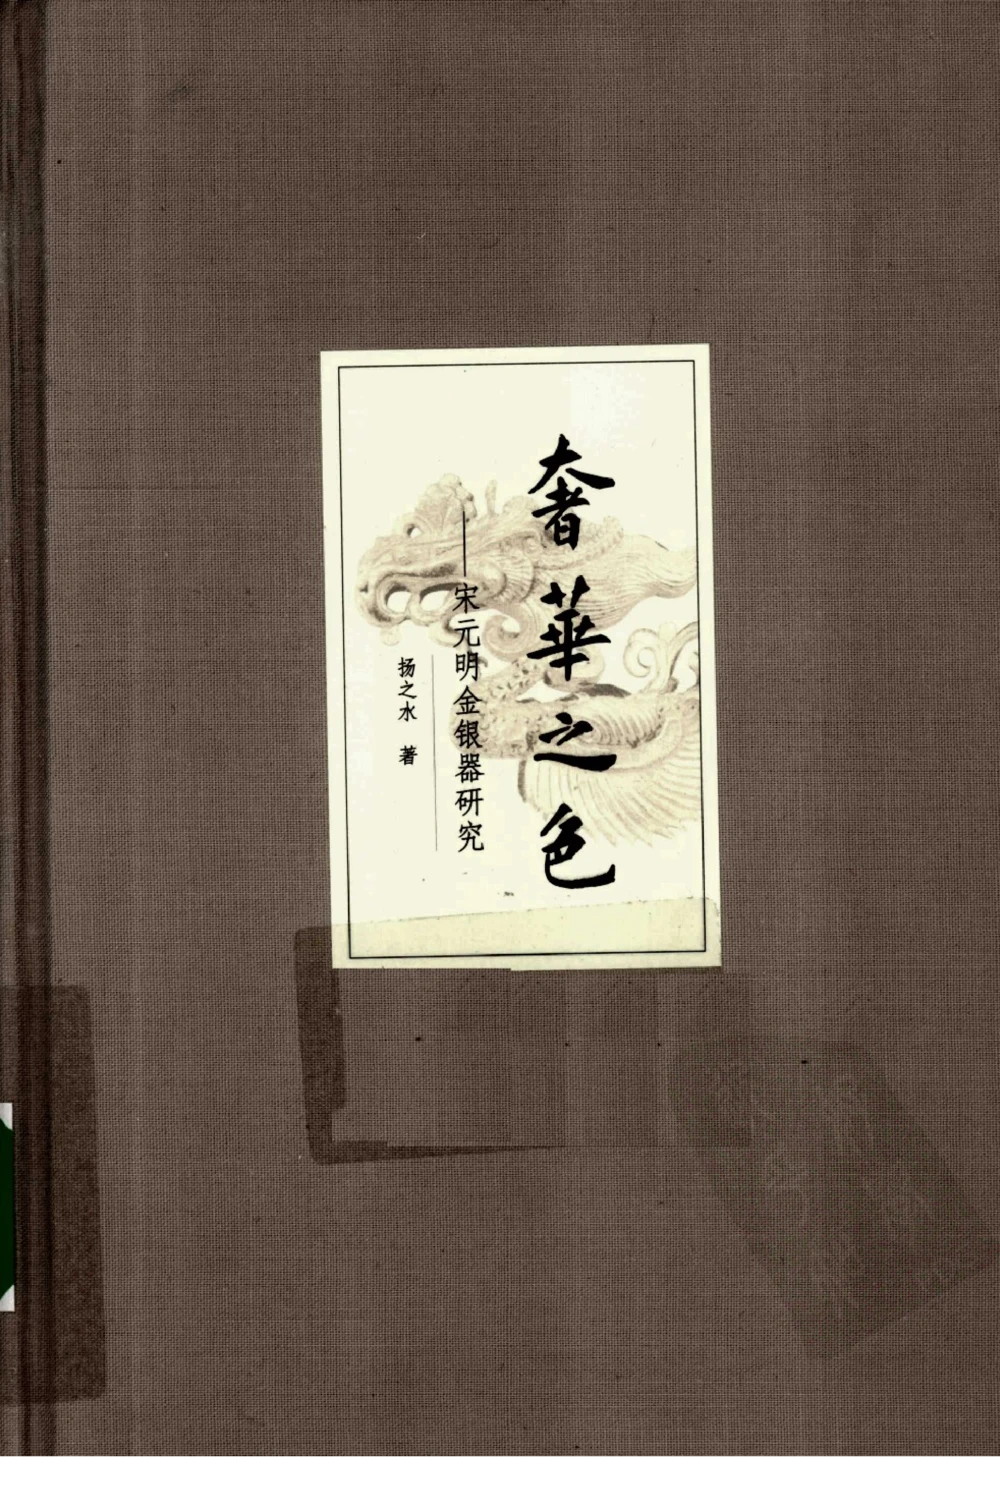 奢華之色
——宋元明金银器研究
扬之水 著